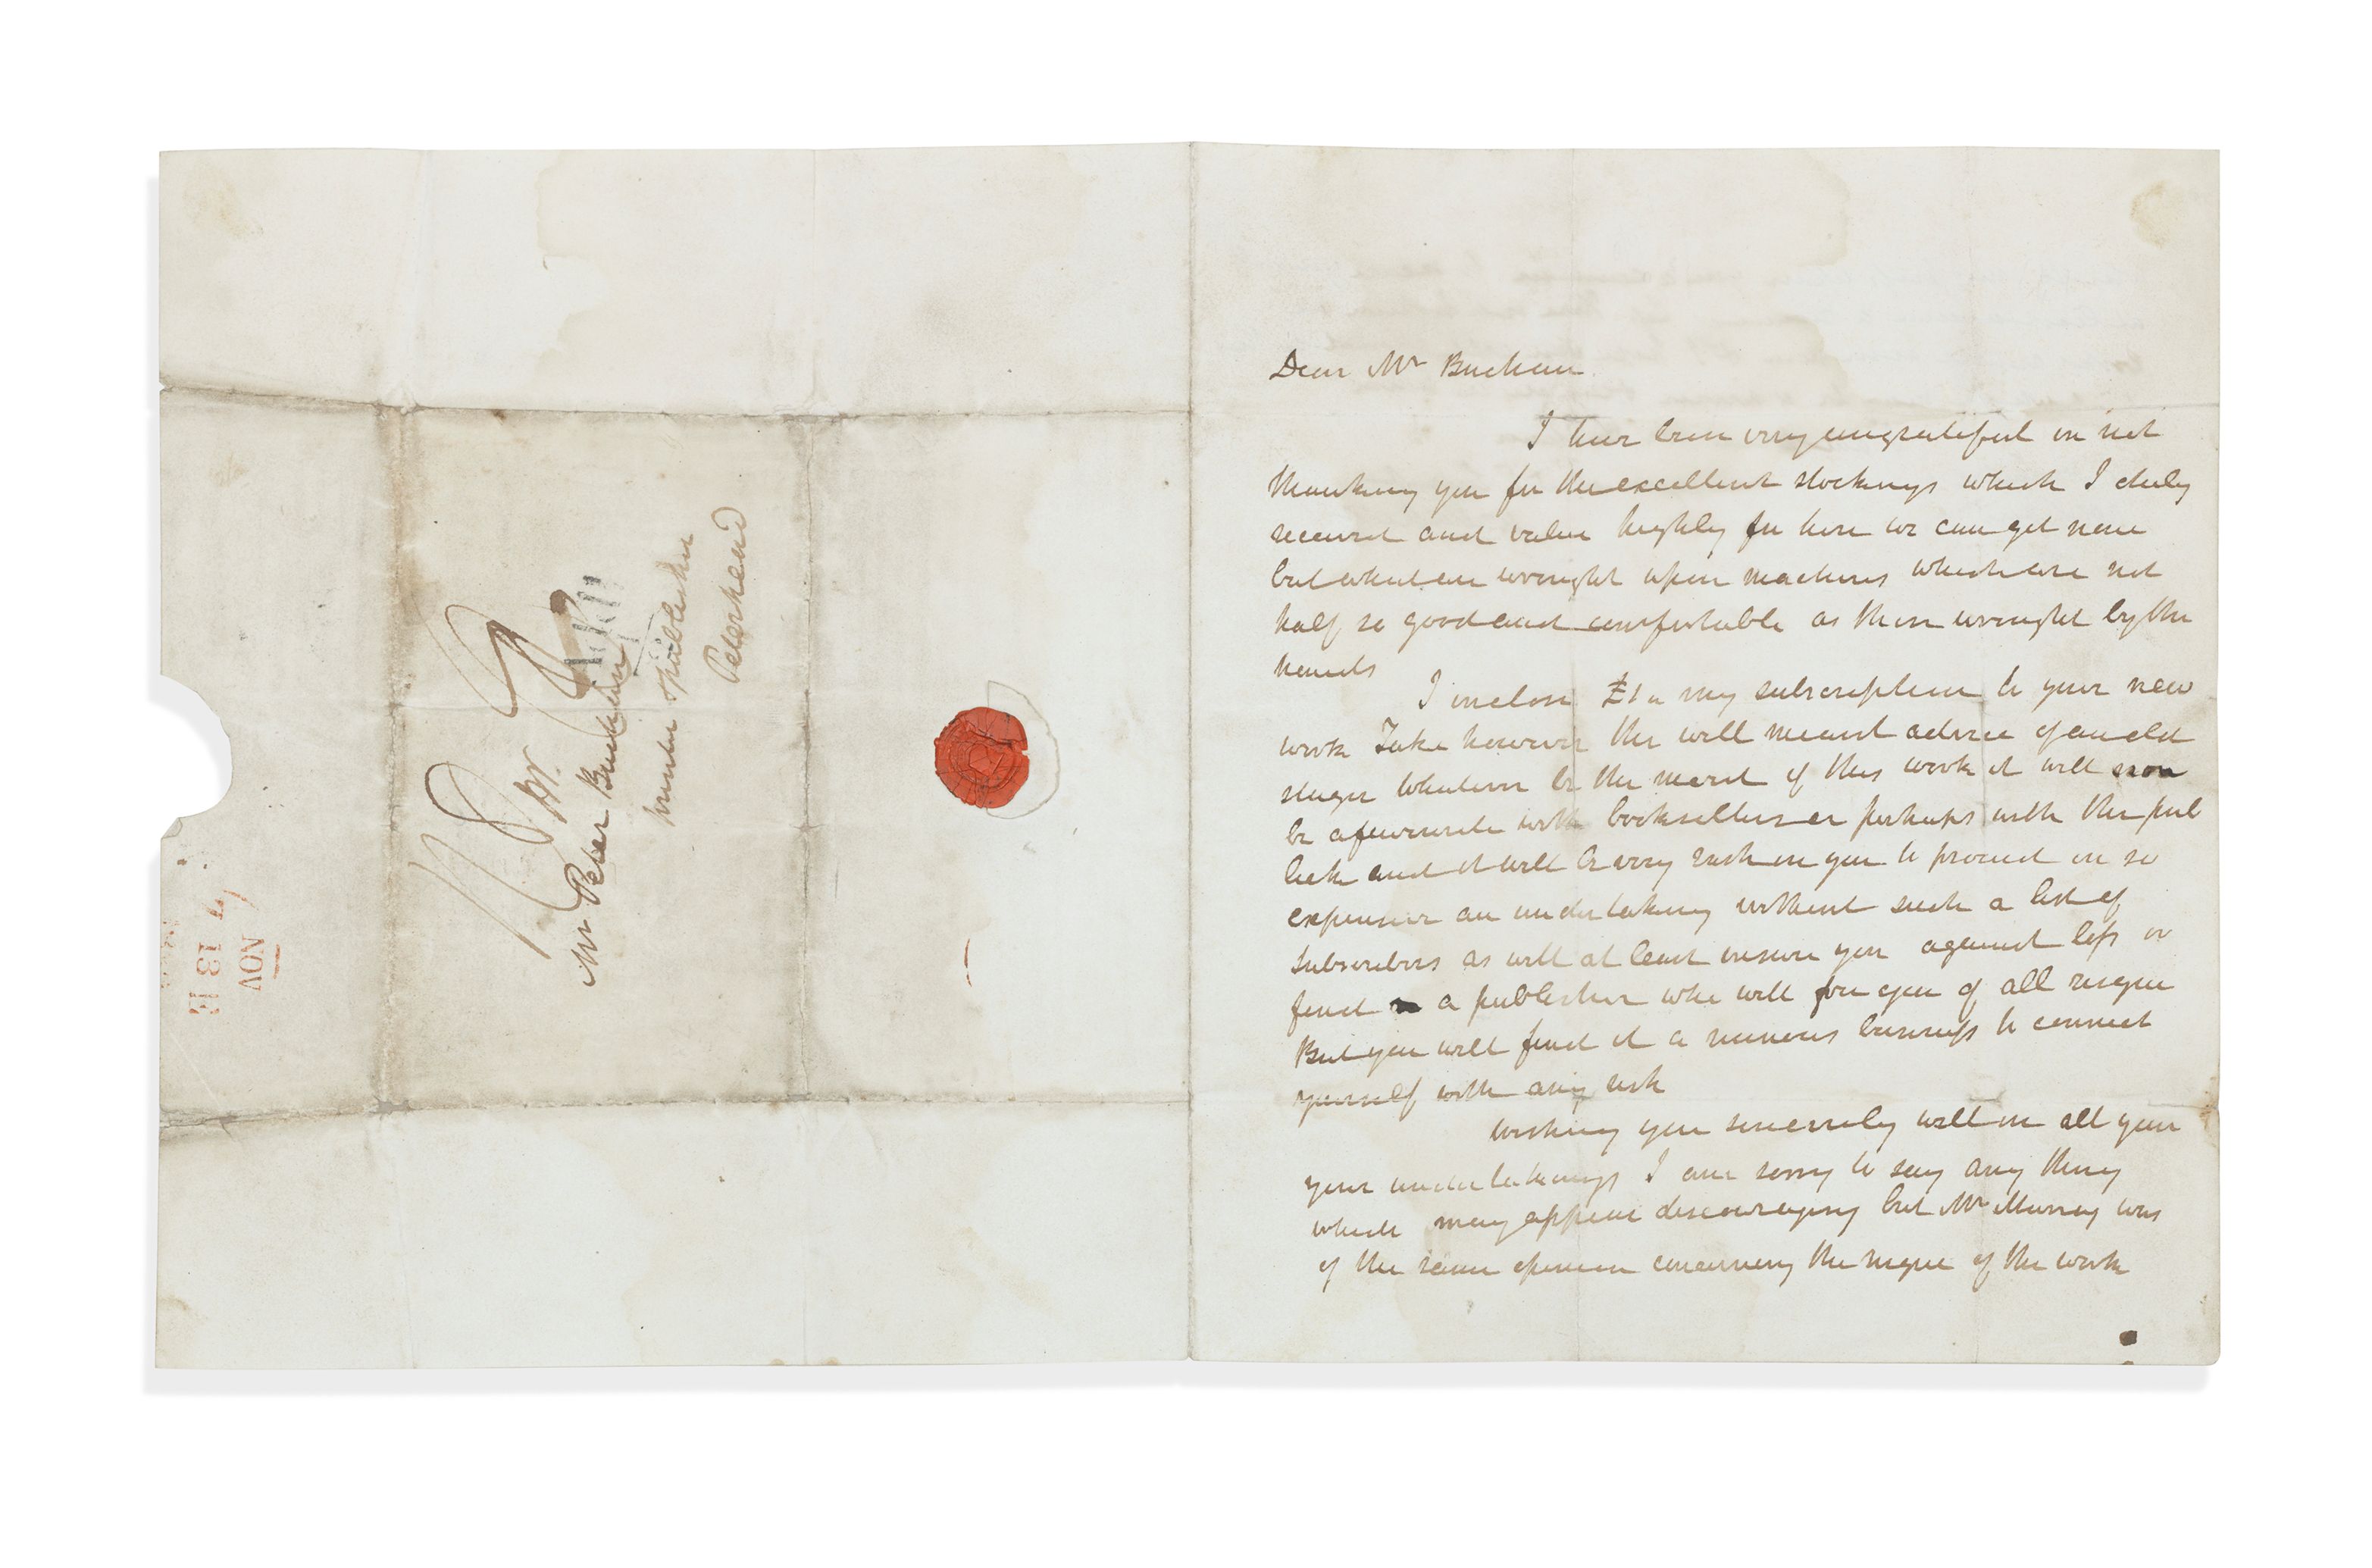 Mr Peter Buchan
Printer & Publisher
Peterhead
NOV
13 E
Dear Mr Buchan
I have been very ungrateful in not
thanking you for the excellent stockings which I duly
received and value highly for here we can get none
but what are wrought upon machines which are not
half so good and comfortable as those wrought by the
hands
I inclose £1 " my subscription to your new
work Take however the well meant advice of an old
stager Whatever be the merit of this work it will
be a favourite with booksellers or perhaps with the pub
lick and it will be very rash in you to proceed in so
expensive an undertaking without such a list of
subscribers as will at least ensure you against loss or
find a publisher who will free you of all risque
But you will find it a ruinous business to connect
yourself with any risk
Wishing you sincerely well in all your
your undertakings I am sorry to say any thing
which may appear discouraging but Mr Murray was
of the same opinion concerning the risque of the work